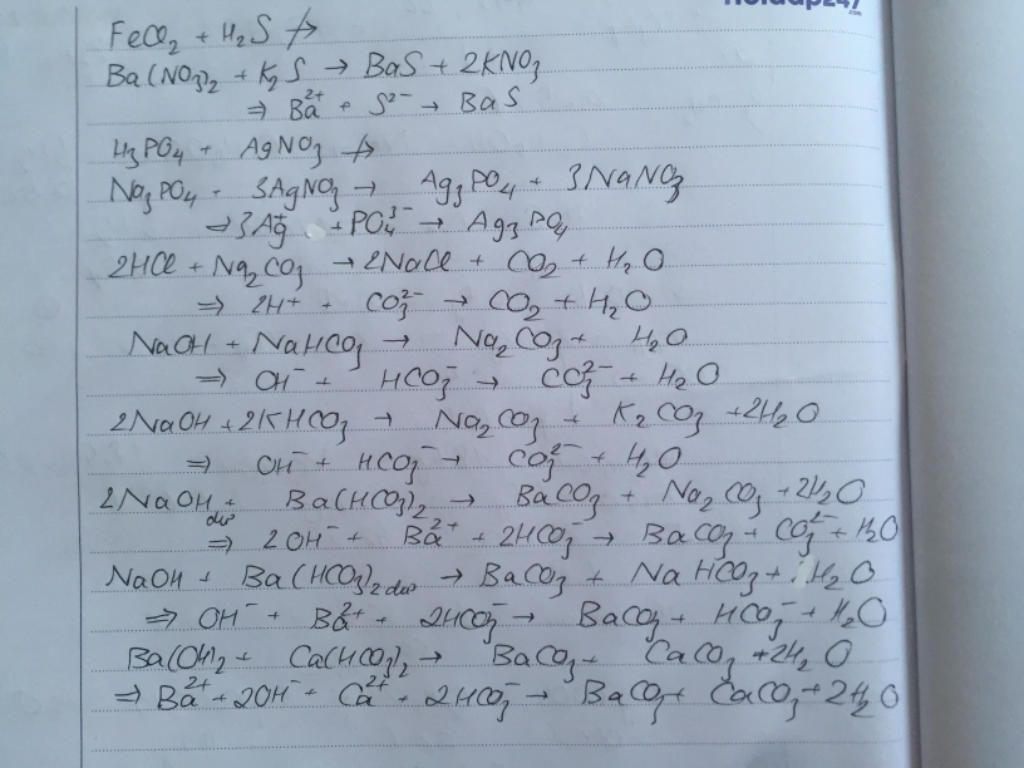 hoidap247
.com
FeCl₂ + H₂S ↛
Ba(NO₃)₂ + K₂S → BaS + 2KNO₃
⇒ Ba²⁺ + S²⁻ → BaS
H₃PO₄ + AgNO₃ ↛
Na₃PO₄ + 3AgNO₃ → Ag₃PO₄ + 3NaNO₃
→ 3Ag⁺ + PO₄³⁻ → Ag₃PO₄
2HCl + Na₂CO₃ → 2NaCl + CO₂ + H₂O
⇒ 2H⁺ + CO₃²⁻ → CO₂ + H₂O
NaOH + NaHCO₃ → Na₂CO₃ + H₂O
⇒ OH⁻ + HCO₃⁻ → CO₃²⁻ + H₂O
2NaOH + 2KHCO₃ → Na₂CO₃ + K₂CO₃ + 2H₂O
⇒ OH⁻ + HCO₃⁻ → CO₃²⁻ + H₂O
2NaOH dư + Ba(HCO₃)₂ → BaCO₃ + Na₂CO₃ + 2H₂O
⇒ 2OH⁻ + Ba²⁺ + 2HCO₃⁻ → BaCO₃ + CO₃²⁻ + H₂O
NaOH + Ba(HCO₃)₂ dư → BaCO₃ + NaHCO₃ + H₂O
⇒ OH⁻ + Ba²⁺ + 2HCO₃⁻ → BaCO₃ + HCO₃⁻ + H₂O
Ba(OH)₂ + Ca(HCO₃)₂ → BaCO₃ + CaCO₃ + 2H₂O
⇒ Ba²⁺ + 2OH⁻ + Ca²⁺ + 2HCO₃⁻ → BaCO₃ + CaCO₃ + 2H₂O